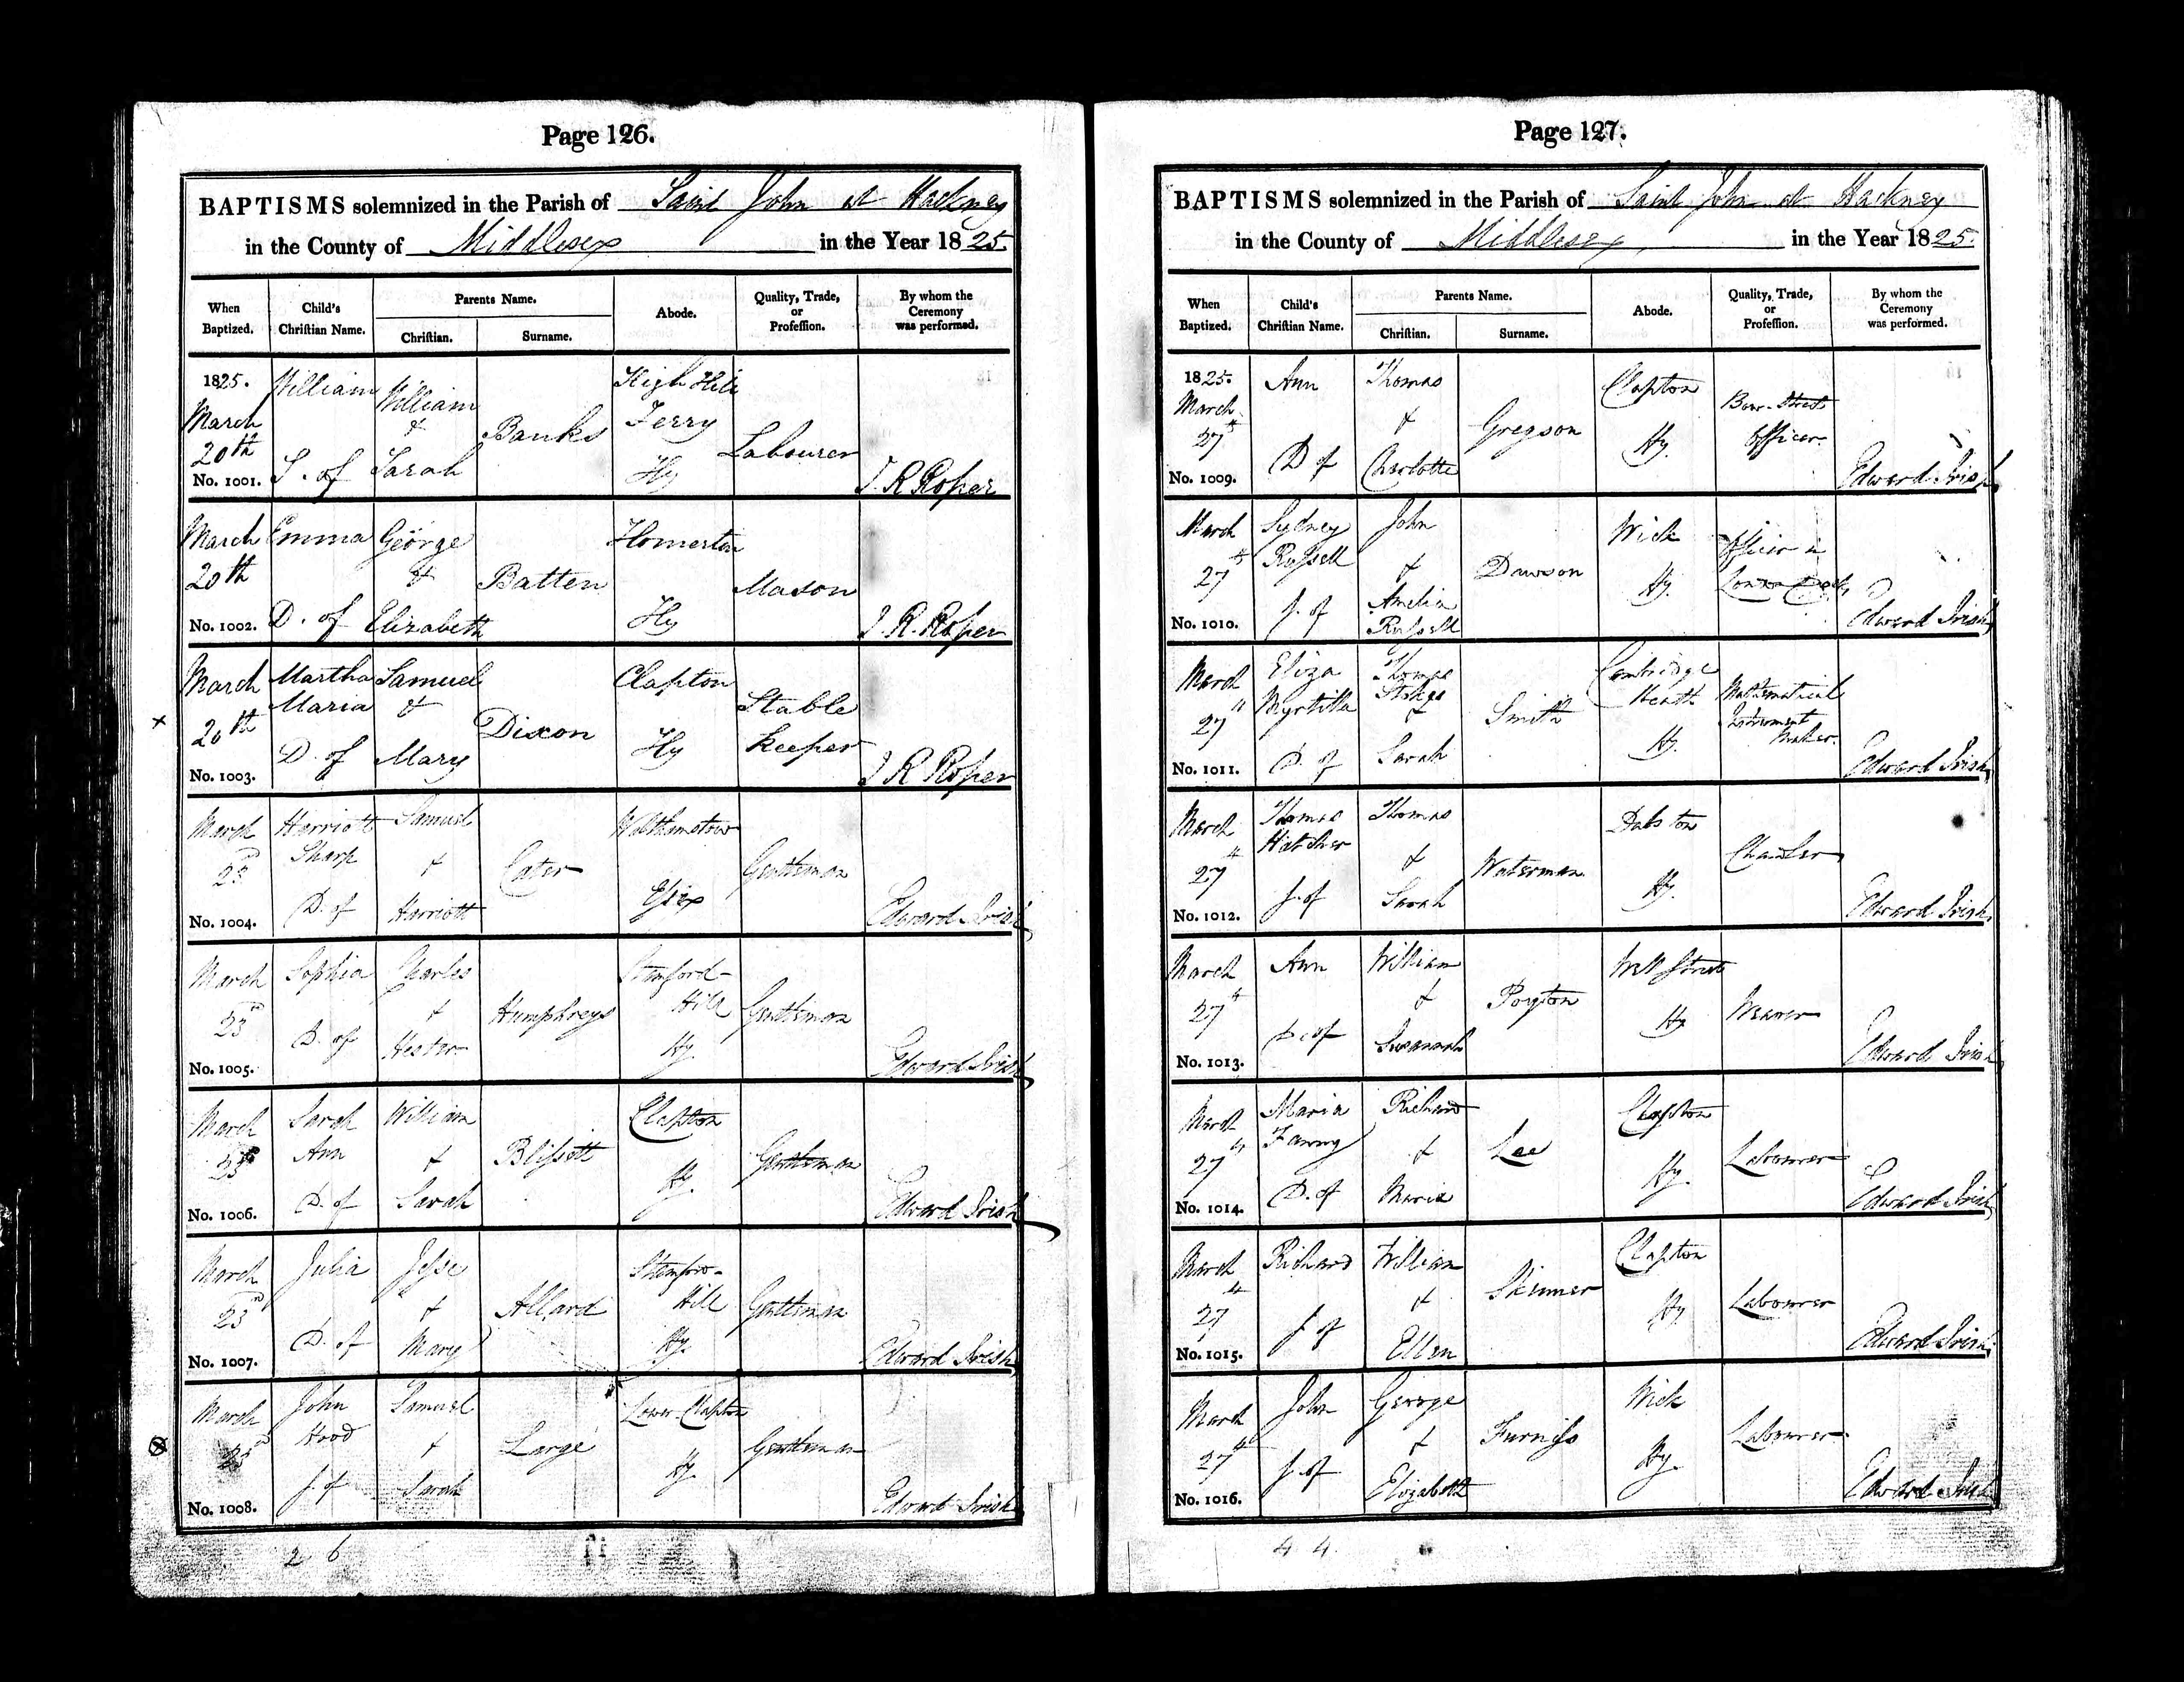 Page 126.
BAPTISMS solemnized in the Parish of Saint John at Hackney
in the County of Middlesex in the Year 1825.
When Baptized. Child's Christian Name. Parents Name. Christian. Surname. Abode. Quality, Trade, or Profession. By whom the Ceremony was performed.
1825. March 20th No. 1001. William S. of William & Sarah Banks High Hill Ferry Hy Labourer J. R Roper
March 20th No. 1002. Emma D. of George & Elizabeth Batten Homerton Hy Mason J. R. Roper
March 20th No. 1003. Martha Maria D. of Samuel & Mary Dixon Clapton Hy Stable Keeper J R Roper
March 23d No. 1004. Harriott Sharp D. of Samuel & Harriott Cater Walthamstow Essex Gentleman Edward Irish
March 23d No. 1005. Sophia D. of Charles & Hester Humphreys Stamford Hill Hy. Gentleman Edward Irish
March No. 1006. Sarah Ann D. of William & Sarah Blissett Clapton Hy. Gentleman Edward Irish
March 23d No. 1007. Julia D. of Jesse & Mary Allard Stamford Hill Hy. Gentleman Edward Irish
March No. 1008. John Hood S. of Samuel & Sarah Large Lower Clapton Hy. Gentleman Edward Irish
2 6
Page 127.
BAPTISMS solemnized in the Parish of Saint John at Hackney
in the County of Middlesex in the Year 1825.
When Baptized. Child's Christian Name. Parents Name. Christian. Surname. Abode. Quality, Trade, or Profession. By whom the Ceremony was performed.
1825. March 27th No. 1009. Ann D of Thomas & Charlotte Gregson Clapton Hy. Bow-Street Officer Edward Irish
March 27th No. 1010. Sydney Russell S. of John & Amelia Russell Dawson Wick Hy. Officer in London Docks Edward Irish
March 27th No. 1011. Eliza Myrtilla D. of Thomas & Sarah Smith Cambridge Heath Hy. Mathematical Instrument Maker. Edward Irish
March 27th No. 1012. Thomas Hatcher S. of Thomas & Sarah Waterman Dalston Hy. Chandler Edward Irish
March 27th No. 1013. Ann D. of William & Susannah Poyton Well Street Hy Weaver Edward Irish
March 27th No. 1014. Maria Fanny D. of Richard & Maria Lee Clapton Hy. Labourer Edward Irish
March 27th No. 1015. Richard S of William & Ellen Skinner Clapton Hy. Labourer Edward Irish
March 27th No. 1016. John S. of George & Elizabeth Furniss Wick Hy. Labourer Edward Irish
4 4